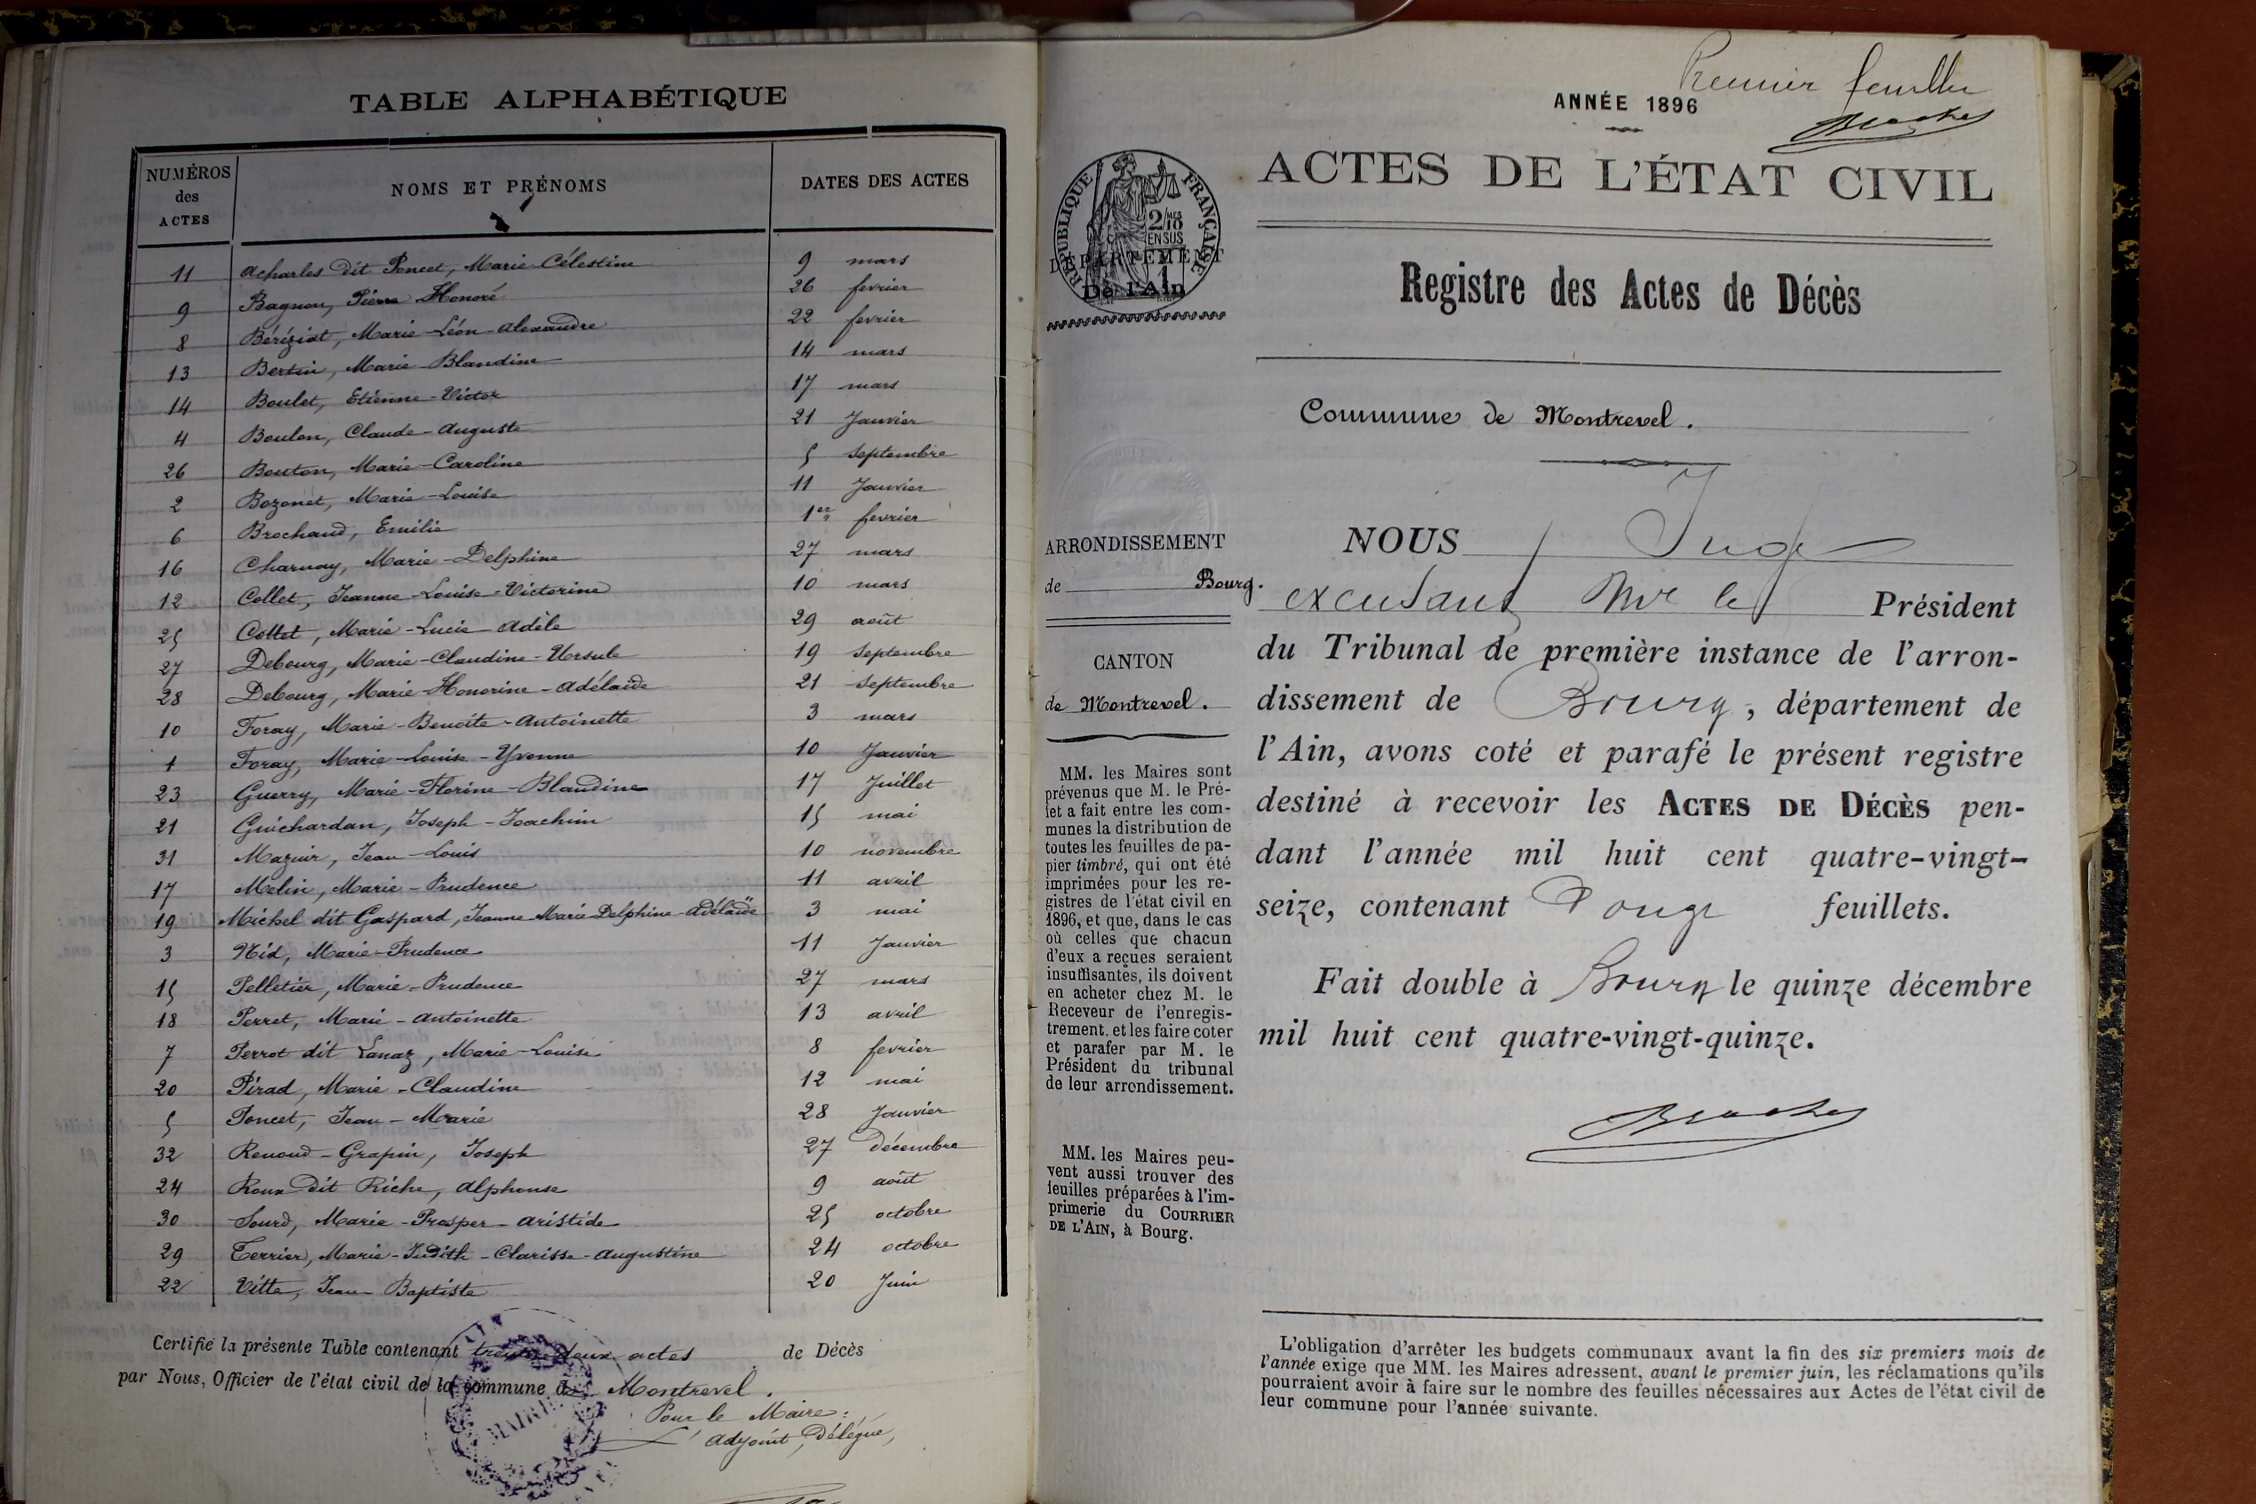 TABLE ALPHABÉTIQUE
NUMÉROS des ACTES | NOMS ET PRÉNOMS | DATES DES ACTES
11 Acharles dit Poncet, Marie Célestine 9 mars
9 Bagnon, Pierre Honoré 26 fevrier
8 Béréziat, Marie-Léon-Alexandre 22 fevrier
13 Bertin, Marie Blandine 14 mars
14 Boulet, Etienne-Victor 17 mars
4 Boulon, Claude-Auguste 21 Janvier
26 Bouton, Marie-Caroline 5 septembre
2 Bozonet, Marie-Louise 11 Janvier
6 Brochaud, Emilie 1er fevrier
16 Charnay, Marie-Delphine 27 mars
12 Collet, Jeanne-Louise-Victorine 10 mars
25 Cottet, Marie-Lucie Adèle 29 août
27 Debourg, Marie-Claudine-Ursule 19 septembre
28 Debourg, Marie-Honorine-Adélaïde 21 septembre
10 Foray, Marie-Benoite-Antoinette 3 mars
1 Foray, Marie-Louise-Yvonne 10 Janvier
23 Guerry, Marie-Florine-Blandine 17 Juillet
21 Guichardan, Joseph-Joachim 15 mai
31 Mazuir, Jean-Louis 10 novembre
17 Melin, Marie-Prudence 11 avril
19 Michel dit Gaspard, Jeanne Marie Delphine-Adélaïde 3 mai
3 Nid, Marie-Prudence 11 Janvier
15 Pelletier, Marie-Prudence 27 mars
18 Perret, Marie-Antoinette 13 avril
7 Perrot dit Lanaz, Marie-Louise 8 fevrier
20 Pirad, Marie-Claudine 12 mai
5 Poncet, Jean-Marie 28 Janvier
32 Renoud-Grapin, Joseph 27 décembre
24 Roux dit Riche, Alphonse 9 août
30 Sourd, Marie-Prosper-Aristide 25 octobre
29 Terrier, Marie-Judith-Clarisse-Augustine 24 octobre
22 Vitte, Jean-Baptiste 20 Juin
Certifié la présente Table contenant trente deux actes de Décès
par Nous, Officier de l'état civil de la commune de Montrevel.
MAIRIE
Pour le Maire:
L'adjoint Délégué,
Premier feuillet
ANNÉE 1896
ACTES DE L'ÉTAT CIVIL
RÉPUBLIQUE FRANÇAISE
2/10 EN SUS
DÉPARTEMENT
De l'Ain
Registre des Actes de Décès
Commune de Montrevel.
ARRONDISSEMENT
de Bourg.
CANTON
de Montrevel.
MM. les Maires sont
prévenus que M. le Pré-
fet a fait entre les com-
munes la distribution de
toutes les feuilles de pa-
pier timbré, qui ont été
imprimées pour les re-
gistres de l'état civil en
1896, et que, dans le cas
où celles que chacun
d'eux a reçues seraient
insuffisantes, ils doivent
en acheter chez M. le
Receveur de l'enregis-
trement. et les faire coter
et parafer par M. le
Président du tribunal
de leur arrondissement.
MM. les Maires peu-
vent aussi trouver des
feuilles préparées à l'im-
primerie du COURRIER
DE L'AIN, à Bourg.
NOUS Juge
excusant Mr le Président
du Tribunal de première instance de l'arron-
dissement de Bourg, département de
l'Ain, avons coté et parafé le présent registre
destiné à recevoir les ACTES DE DÉCÈS pen-
dant l'année mil huit cent quatre-vingt-
seize, contenant Douze feuillets.
Fait double à Bourg le quinze décembre
mil huit cent quatre-vingt-quinze.
L'obligation d'arrêter les budgets communaux avant la fin des six premiers mois de
l'année exige que MM. les Maires adressent, avant le premier juin, les réclamations qu'ils
pourraient avoir à faire sur le nombre des feuilles nécessaires aux Actes de l'état civil de
leur commune pour l'année suivante.